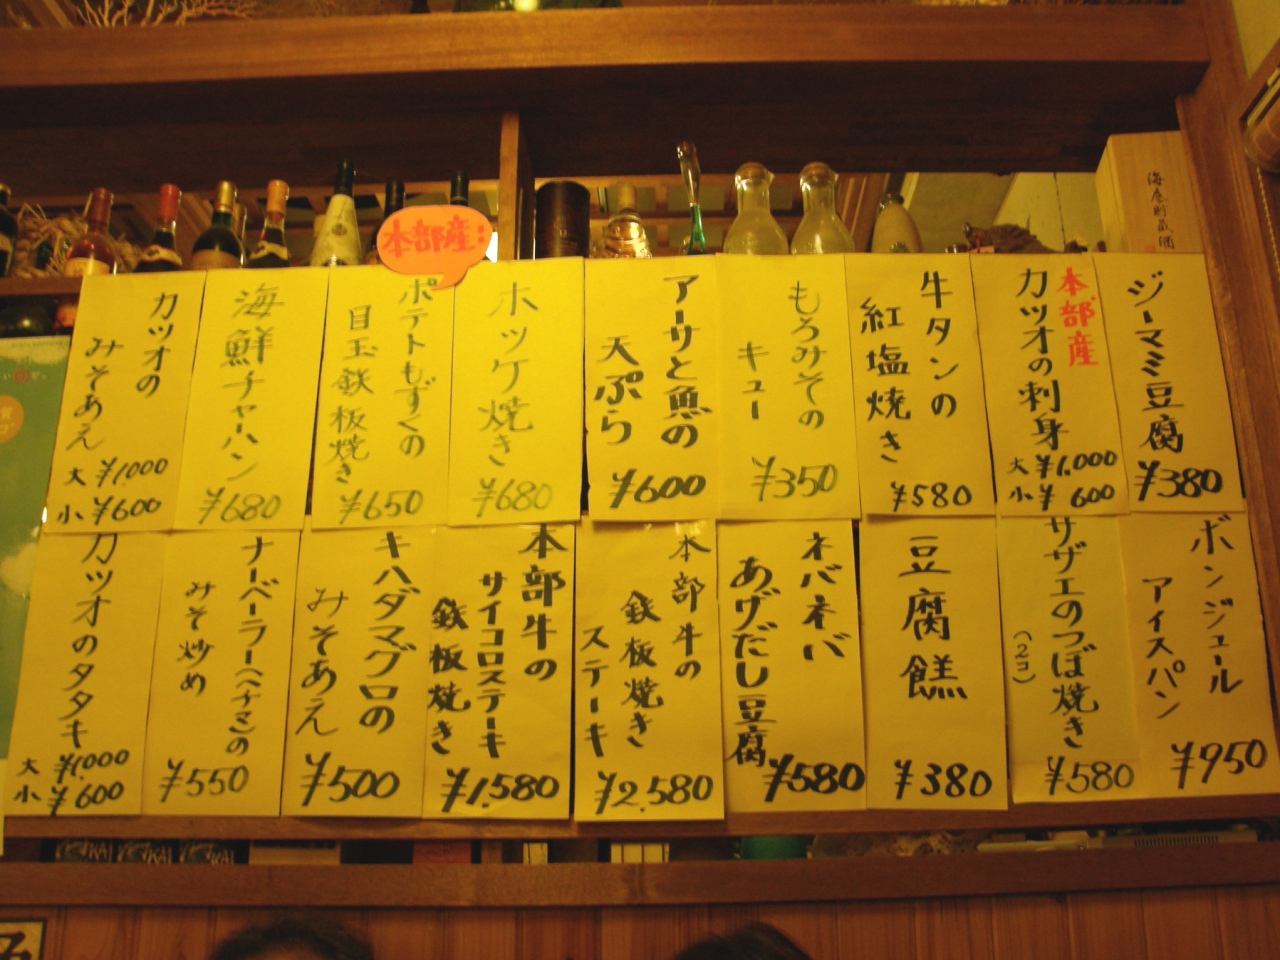 海底貯蔵酒
ジーマミ豆腐
¥380
本部産
カツオの刺身
大 ¥1,000
小 ¥ 600
牛タンの
紅塩焼き
¥580
もろみその
キュー
¥350
アーサと魚の
天ぷら
¥600
ホッケ焼き
¥680
本部産!
ポテトもずくの
目玉鉄板焼き
¥650
海鮮チャーハン
¥680
カツオの
みそあえ
大 ¥1,000
小 ¥600
ボンジュール
アイスパン
¥950
サザエのつぼ焼き
(2コ)
¥580
豆腐餻
¥380
ネバネバ
あげだし豆腐
¥580
本部牛の
鉄板焼き
ステーキ
¥2,580
本部牛の
サイコロステーキ
鉄板焼き
¥1,580
キハダマグロの
みそあえ
¥500
ナーベーラー(ヘチマ)の
みそ炒め
¥550
カツオのタタキ
大 ¥1,000
小 ¥600